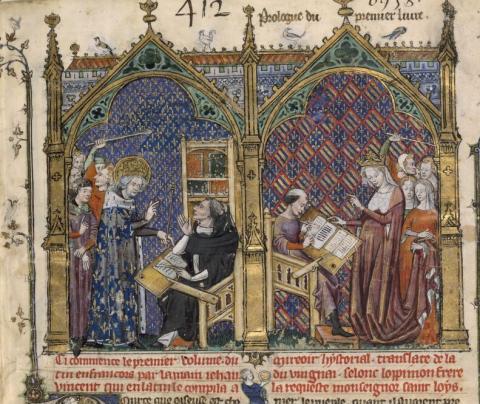 412
Prologue du premier liure.
Ci commence le premier volume du mireoir hystorial. translate de la
tin en francois par la main iehan du vingnai. selonc lopinion frere
vincent qui en latin le compila a la requeste monseignor saint loys.
ource que oiseuse est